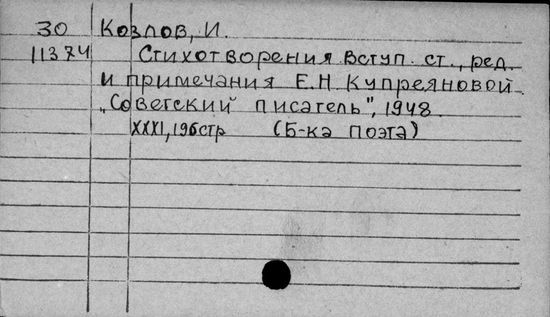 30 Козлов, И.
11374 Стихотворения Вступ. ст., ред.
и примечания Е.Н. Купреяновой.
"Советский писатель", 1948.
XXXI, 196стр (Б-ка поэта)